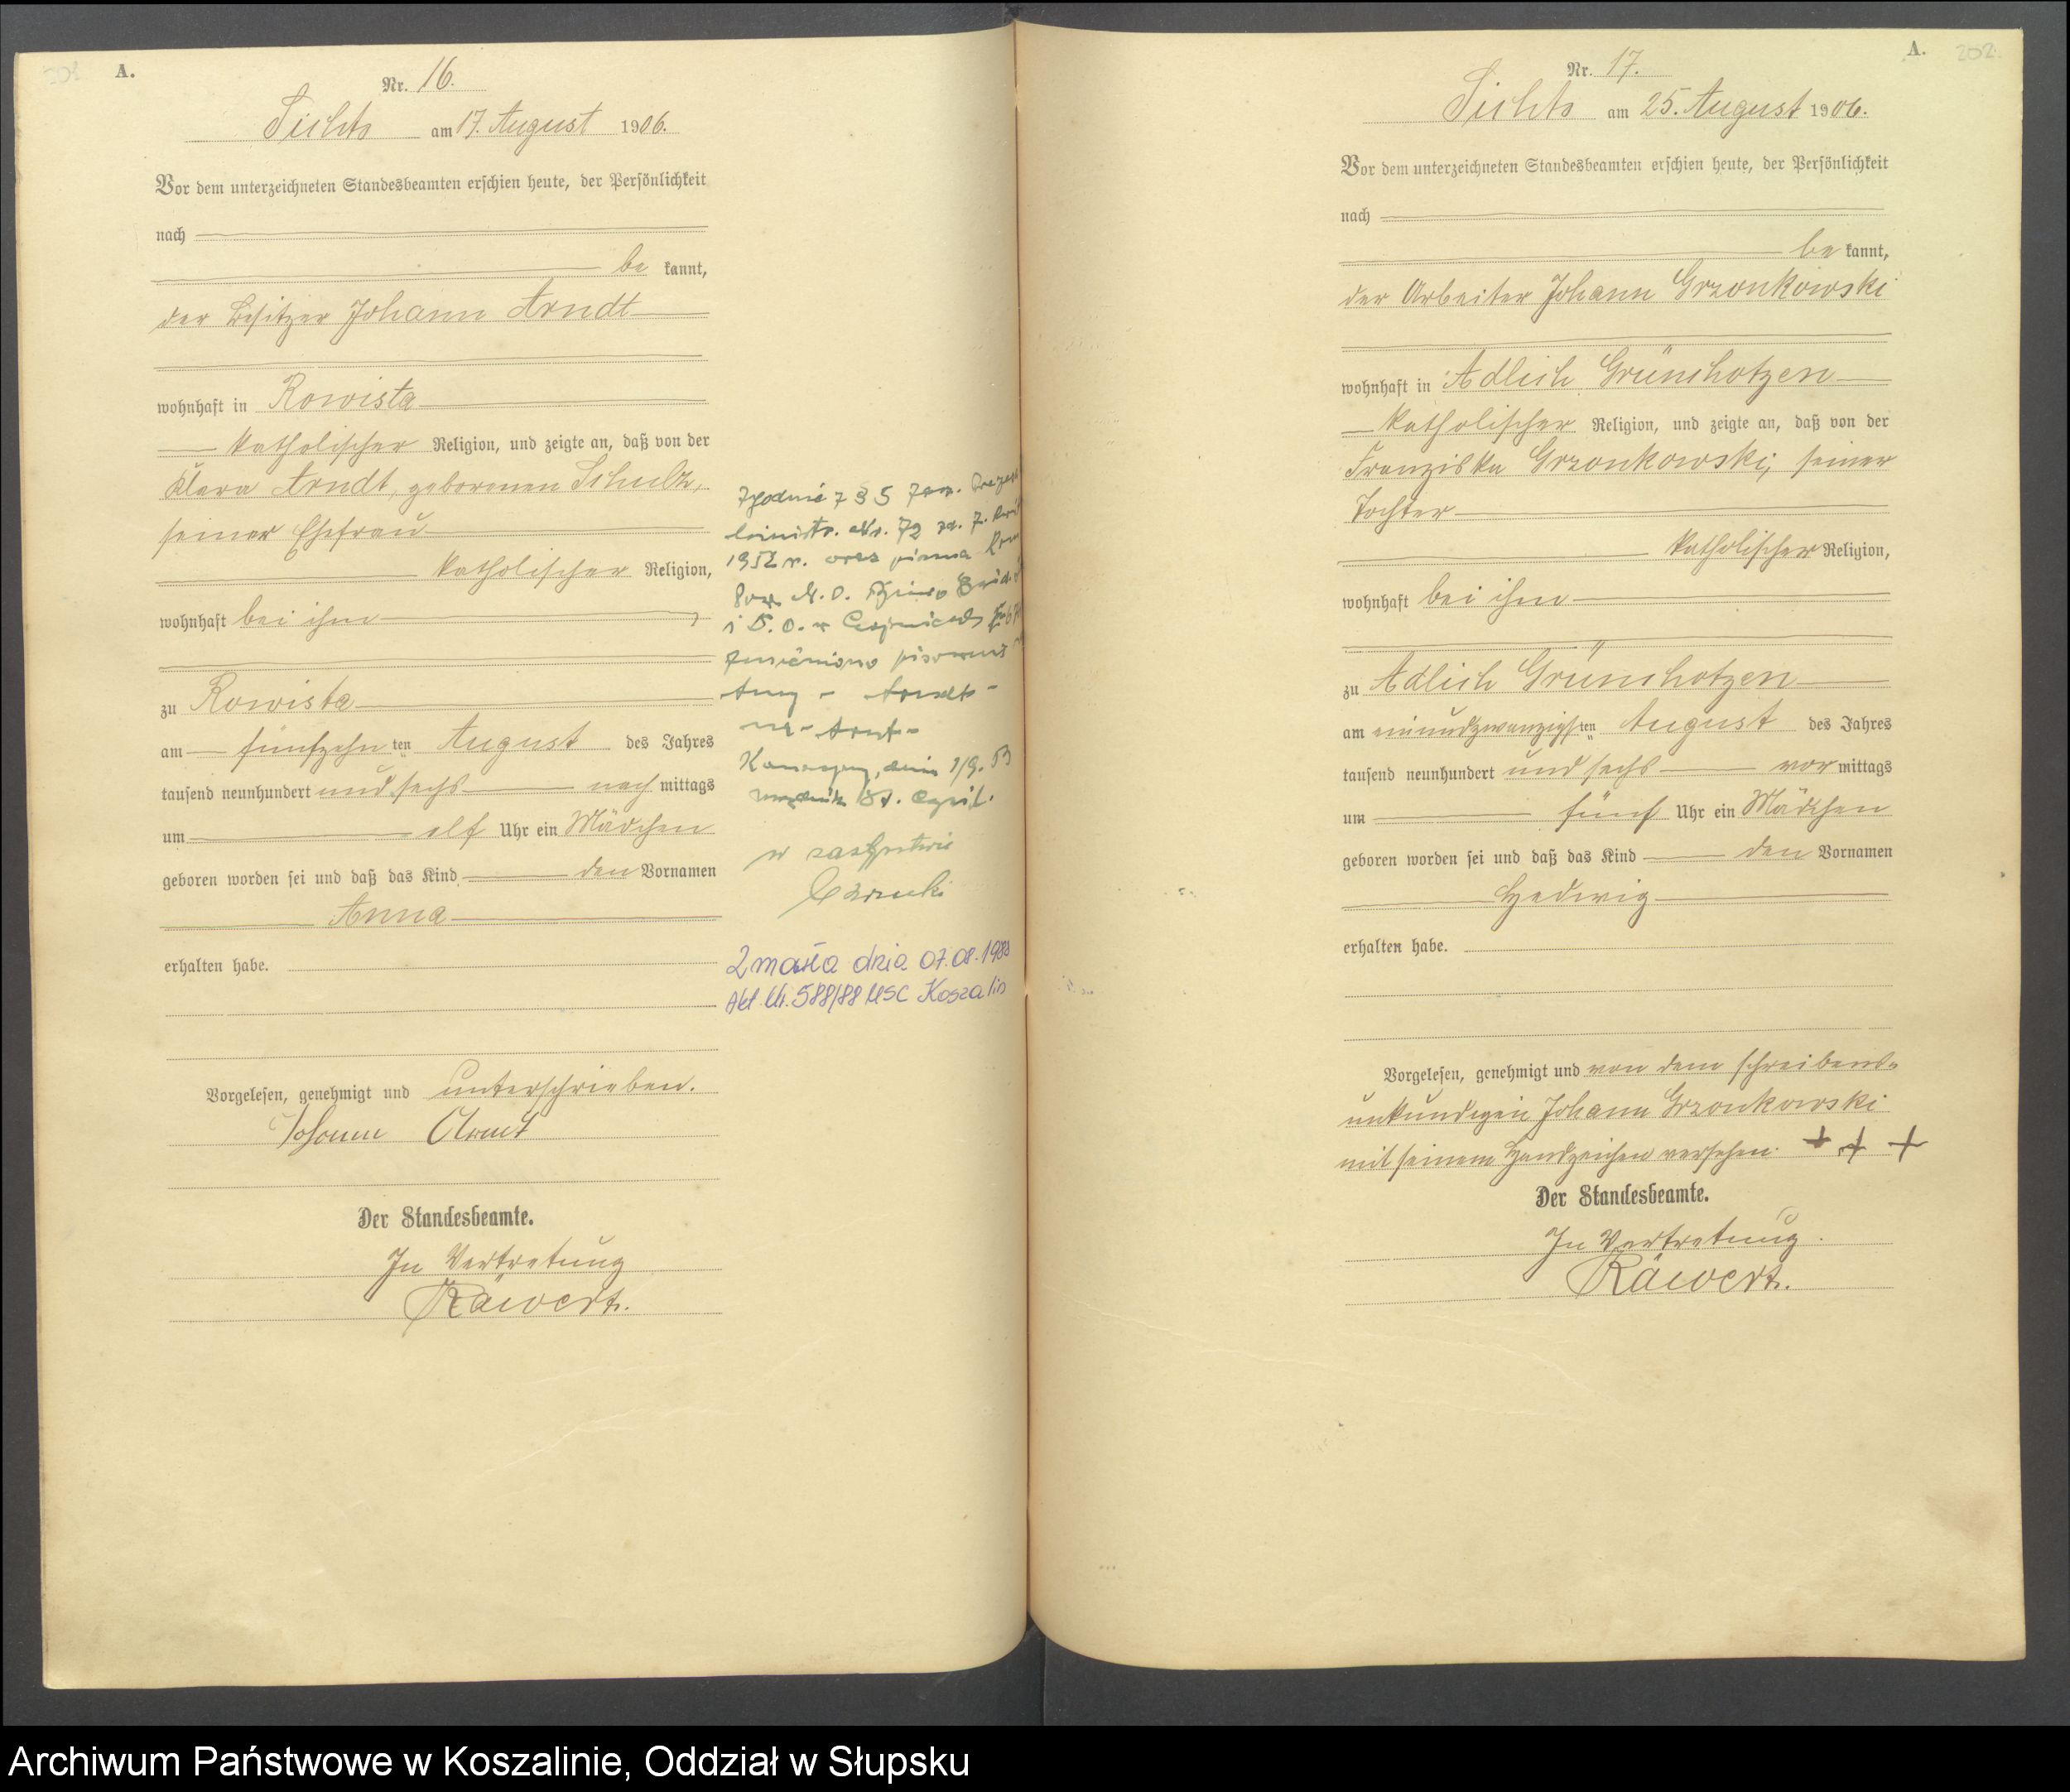 201
A.
Nr. 16.
Sichts am 17. August 1906.
Vor dem unterzeichneten Standesbeamten erschien heute, der Persönlichkeit
nach
be kannt,
der Besitzer Johann Arndt
wohnhaft in Rowista
katholischer Religion, und zeigte an, daß von der
Klara Arndt, geborenen Schulz,
seiner Ehefrau
katholischer Religion,
wohnhaft bei ihm
zu Rowista
am fünfzehn ten August des Jahres
tausend neunhundert und sechs nach mittags
um elf Uhr ein Mädchen
geboren worden sei und daß das Kind den Vornamen
Anna
erhalten habe.
Vorgelesen, genehmigt und unterschrieben.
Johann Arndt
Der Standesbeamte.
In Vertretung
Räwert.
Zgodnie z § 5
Nr. 72
1952 r. oraz pisma
zmieniono pisownię
Arndt -
na - Arnt -
dnia 1/9. 53
w zastępstwie
Zmarła dnia 07.08.1988
Akt. Nr. 588/88 USC Koszalin
A.
202
Nr. 17.
Sichts am 25. August 1906.
Vor dem unterzeichneten Standesbeamten erschien heute, der Persönlichkeit
nach
be kannt,
der Arbeiter Johann Grzonkowski
wohnhaft in Adlich Grünchotzen
katholischer Religion, und zeigte an, daß von der
Franziska Grzonkowski, seiner
Tochter
katholischer Religion,
wohnhaft bei ihm
zu Adlich Grünchotzen
am einundzwanzigsten August des Jahres
tausend neunhundert und sechs vor mittags
um fünf Uhr ein Mädchen
geboren worden sei und daß das Kind den Vornamen
Hedwig
erhalten habe.
Vorgelesen, genehmigt und von dem schreibens-
unkundigen Johann Grzonkowski
mit seinem Handzeichen versehen. + + +
Der Standesbeamte.
In Vertretung.
Räwert.
Archiwum Państwowe w Koszalinie, Oddział w Słupsku